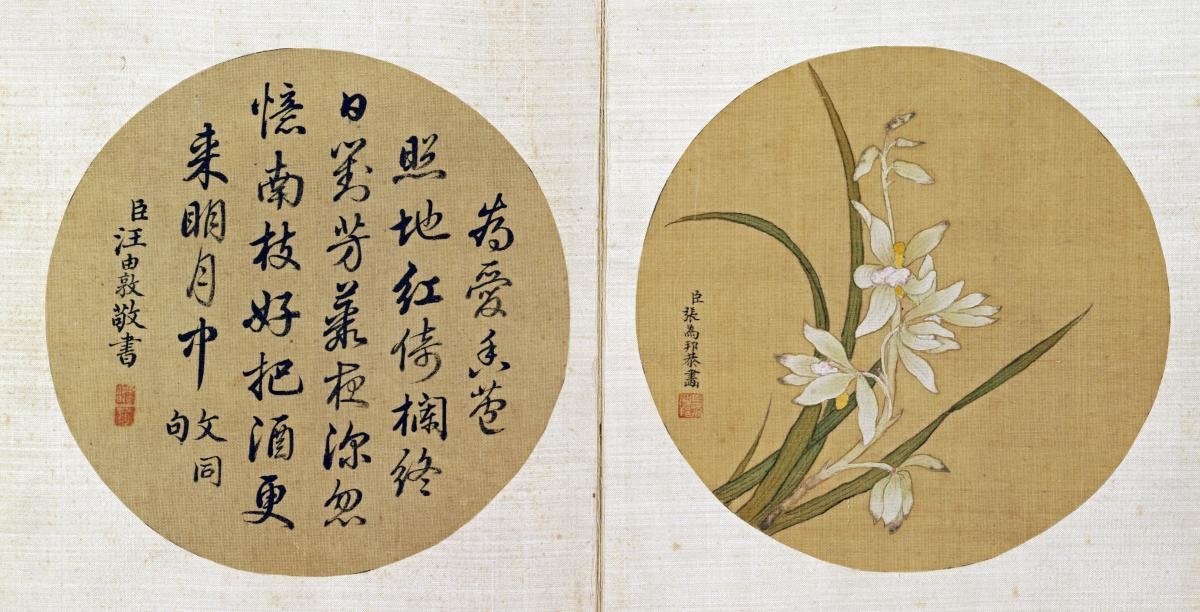 臣張為邦恭畫
為愛香苞
照地紅倚欄終
日對芳藂夜深忽
憶南枝好把酒更
来明月中
文同
句
臣汪由敦敬書